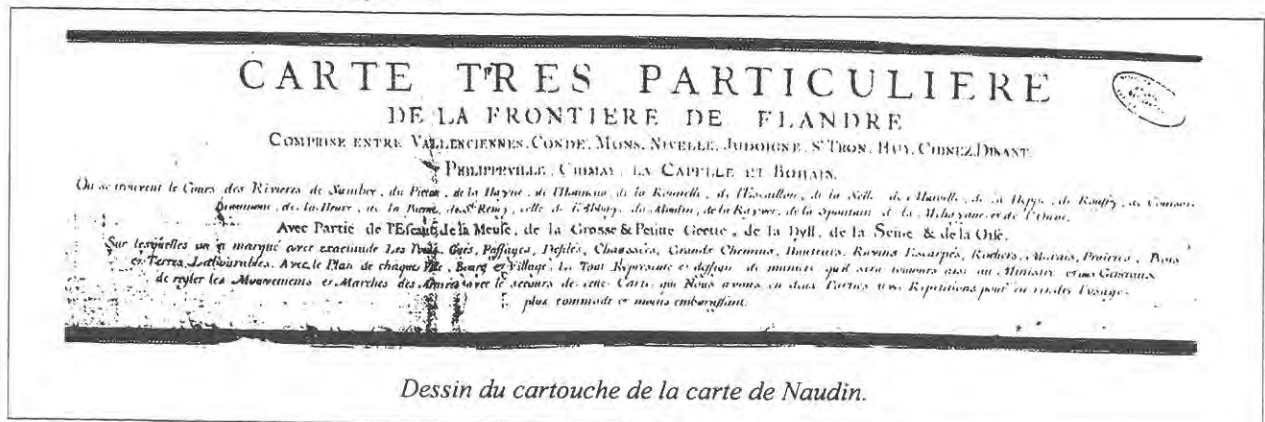 CARTE TRES PARTICULIERE
DE LA FRONTIERE DE FLANDRE
COMPRISE ENTRE VALLENCIENNES, CONDE, MONS, NIVELLE, JUDOIGNE, St TRON, HUY, CHINEZ, DINANT
PHILIPPEVILLE, CHIMAY, LA CAPELLE ET BOHAIN.
Ou se trouvent le Cours des Rivieres de Sambre, du Pieton, de la Hayne, de l'Honneau, de la Rounelle, de l'Escaillon, de la Selle
de la Heure, de St Remy, celle de l'Abbaye du Moulin, et la Mehayne et de
Avec Partie de l'Escaut, de la Meuse, de la Grosse & Petitte Geette, de la Dyll, de la Seine & de la Oise,
Sur lesquelles on a marqué avec exactitude Les Ponts, Gués, Passages, Defilés, Chaussées, Grands Chemins, Hauteurs, Ravins Escarpés, Rochers, Marais, Prairies, Bois
et Terres Labourables. Avec le Plan de chaque Ville, Bourg et Village, Le Tout Representé et dessiné de maniere qu'il sera toujours aisé au Ministre et aux Generaux
de regler les Mouvements et Marches des Armées avec le secours de cette Carte, que Nous avons en deux Parties avec Repetitions pour en rendre l'usage
plus commode et moins embarassant.
Dessin du cartouche de la carte de Naudin.